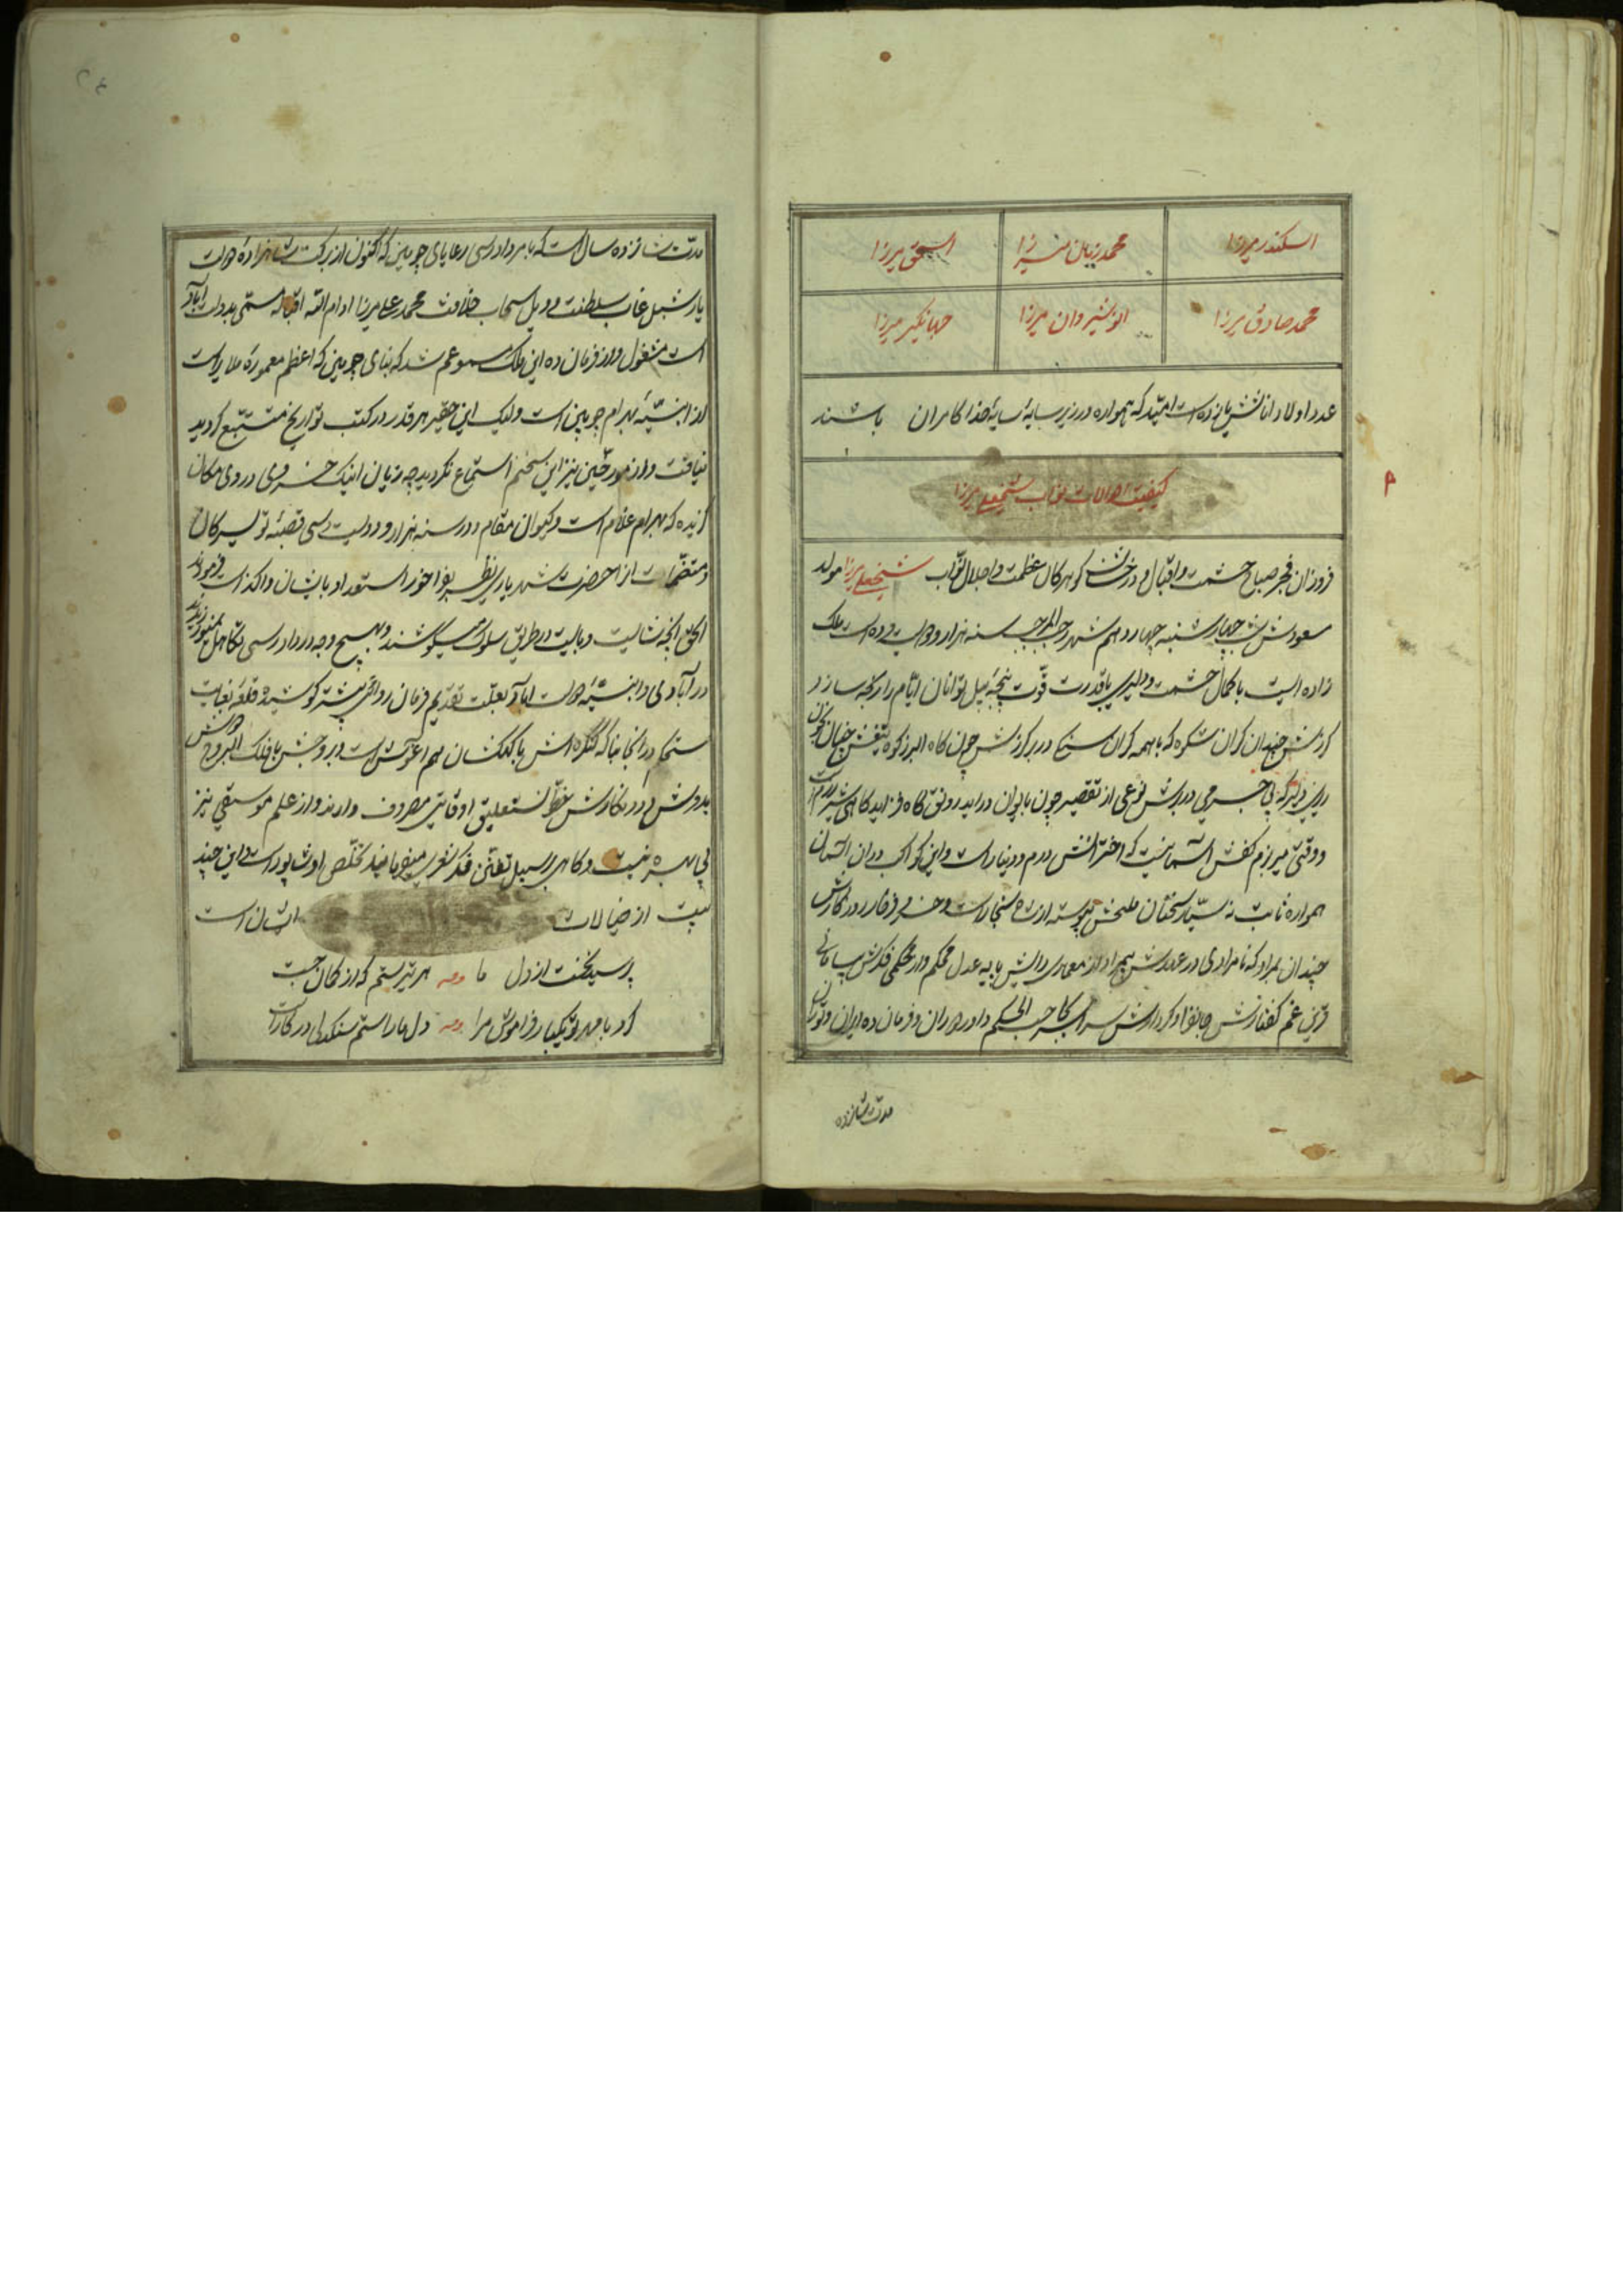 اسکندر میرزا محمد زمان میرزا اسحق میرزا
محمد صادق میرزا انوشیروان میرزا جهانگیر میرزا
عدد اولاد اناثش یازده است امید که همواره در زیر سایهٔ سایهٔ خدا کامران باشند
کیفیت احوالات نواب شیخعلی میرزا
فروزان فجر صباح حشمت و اقبال و درخشان گوهر کان عظمت و اجلال نواب شیخعلی میرزا مولد
مسعودش شب چهارشنبه چهاردهم شهر رجب المرجب سنه هزار و دویست و ده است ملک
زاده ایست با کمال حشمت و دلیری با قدرت قوت پنجهٔ پیل توانان ایام را رنجه سازد
کرزش چندان کران شکوه که با همه کران سنجی در بر کرزش چون کاه البرز کوه تیغش چنان خون
ریز
و وقتی میر بزم کفش آسمانیست که اخترانش درم و دینار است و این کواکب در آن آسمان
همواره ثابت نه سیار سخنان
چندان بمراد که نامرادی در عهدش هیچ از معماری رایش پایه عدل محکم و از محکمی فکرش
قرین غم گفتارش جانفزا و کردارش سراسر بجا حسب الحکم داور دوران و فرمان ده ایران و توران
مدت شانزده
مدت شانزده سال است که بامر دادرسی رعایای چوبین که اکنون از برکت شاهزاده دولت
یار شبل غاب سلطنت و وبل سحاب خلافت محمد علی میرزا ادام الله اقباله مسمی بدولت آباد
است مشغول و از فرمان ده این ملک مسموعم شد که بنای چوبین که اعظم معموره ملایر است
از ابنیهٔ بهرام چوبین است ولیک این حقیر هر قدر در کتب تواریخ متتبع گردید
نیافت و از مورخین نیز این سخنم استماع نگردید چه زیان اینک خسروی در وی مکان
گزیده که بهرام غلام است و کیوان مقام و در سنه هزار و دویست و سی قصبهٔ تویسرکان
و متعلقات از حضرت شهریاری نظر بفراخور استعداد بایشان واگذاشت فرمودند
الحق آنچه شایست و بایست در طریق سلوک میکوشند و بهیچ وجه در دادرسی تکاهل نمیورزند
در آبادی و ابنیهٔ دولت آباد بعلت تقدیم فرمان روائی بیشتر کوشیده قلعهٔ بغایت
مستحکم در آنجا بنا که کنگره اش با کهکشان هم آغوش است و بروجش با فلک البروج دوش
بدوش و در نگارش خط نستعلیق اوقاتی مصروف دارند و از علم موسیقی نیز
بی بهره نیست و گاهی بر سبیل تفنن فکر شعری میفرمایند تخلص او شاپور است و این چند
بیت از خیالات ایشان است
پرسید نخست از دل ما وله هر تیر ستم که از کمان جست
کرد با مهر تو یکبار فراموش مرا وله دل ما را ستم سنگدلی در کار است